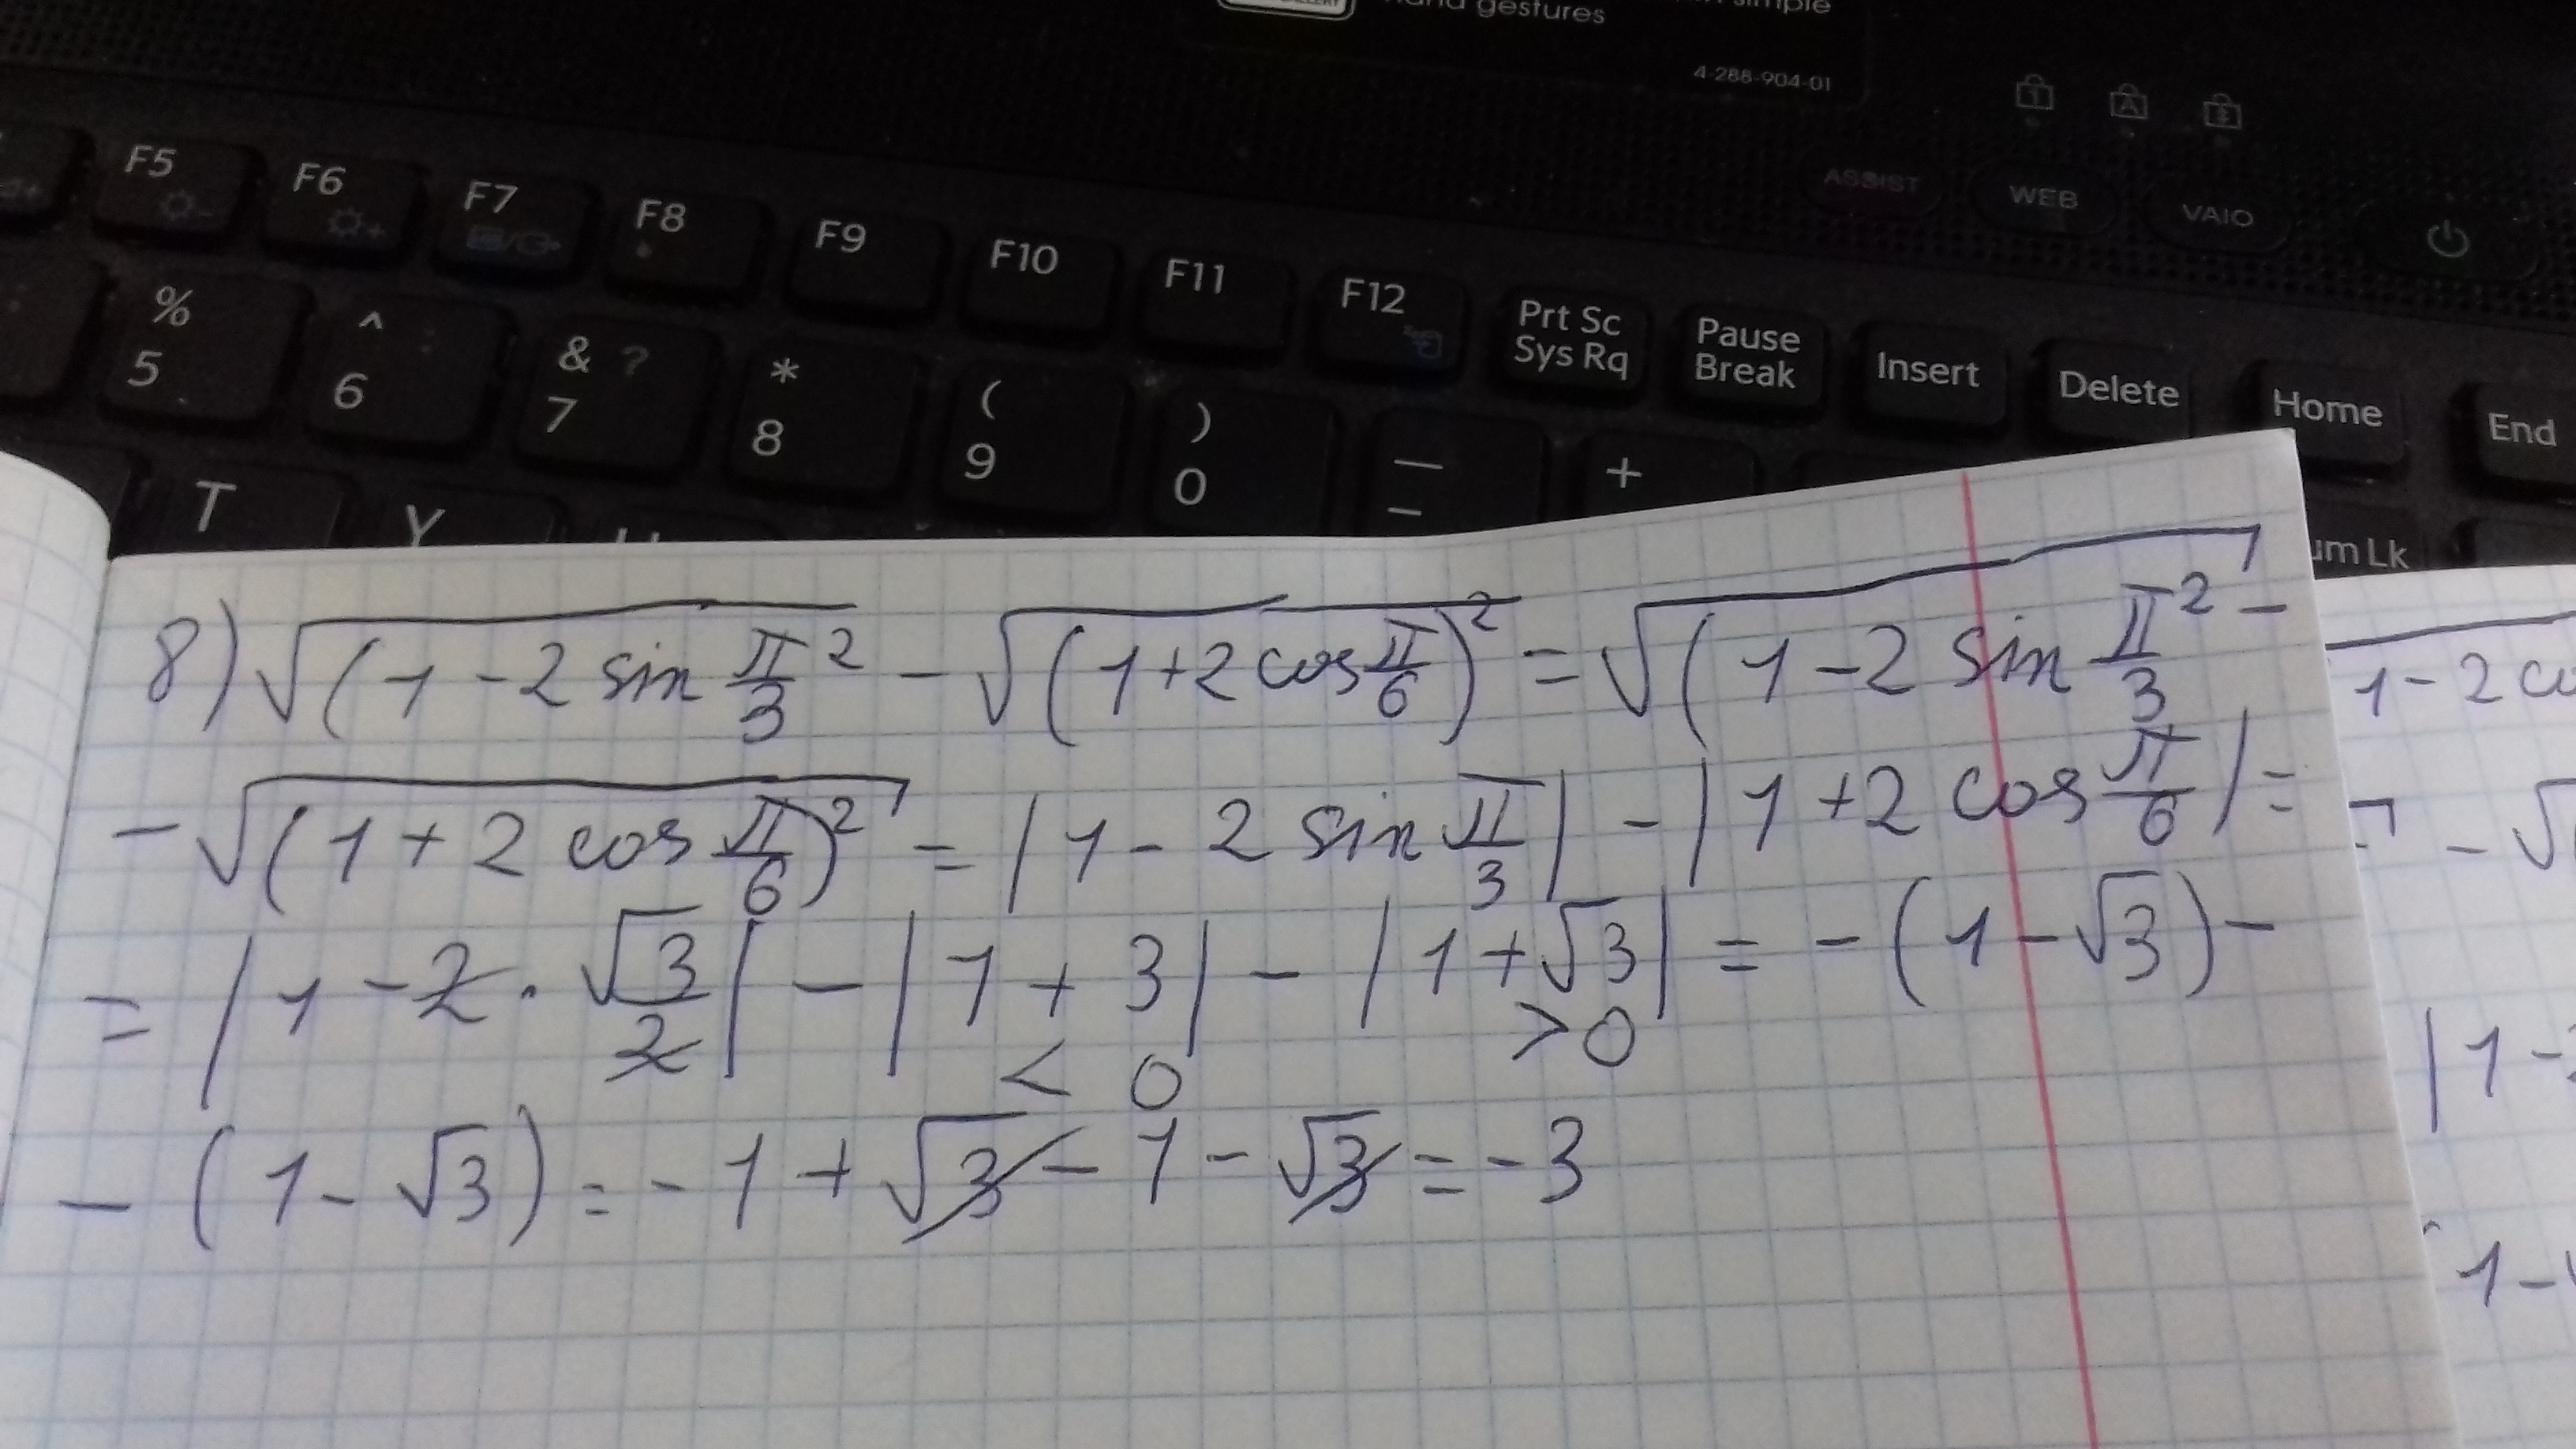 simple
hand gestures
4-288-904-01
1 A
ASSIST WEB VAIO
F5 F6 F7 F8 F9 F10 F11 F12 Prt Sc Sys Rq Pause Break Insert Delete Home End
% 5 ^ 6 & ? 7 * 8 ( 9 ) 0 — – +
T Y um Lk
8) √(1-2 sin π/3 ² - √(1+2 cos π/6)² = √(1-2 sin π/3 ² -
- √(1+2 cos π/6)² = |1-2 sin π/3| - |1+2 cos π/6| =
= |1-2·√3/2| - |1+3| - |1+√3| = -(1-√3)-
< 0 >0
- (1-√3) = -1+√3-1-√3 = -3
1-2 co
- √
|1-
1-